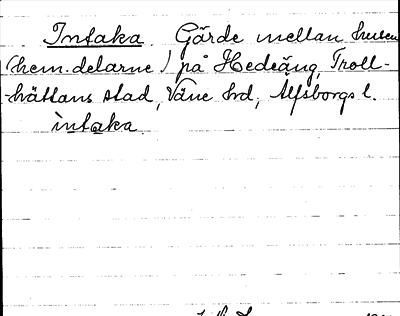 Intaka. Gärde mellan husen
(hem.delarne) på Hedeäng, Troll-
-hättans stad, Väne hrd, Älfsborgs l.
intaka.